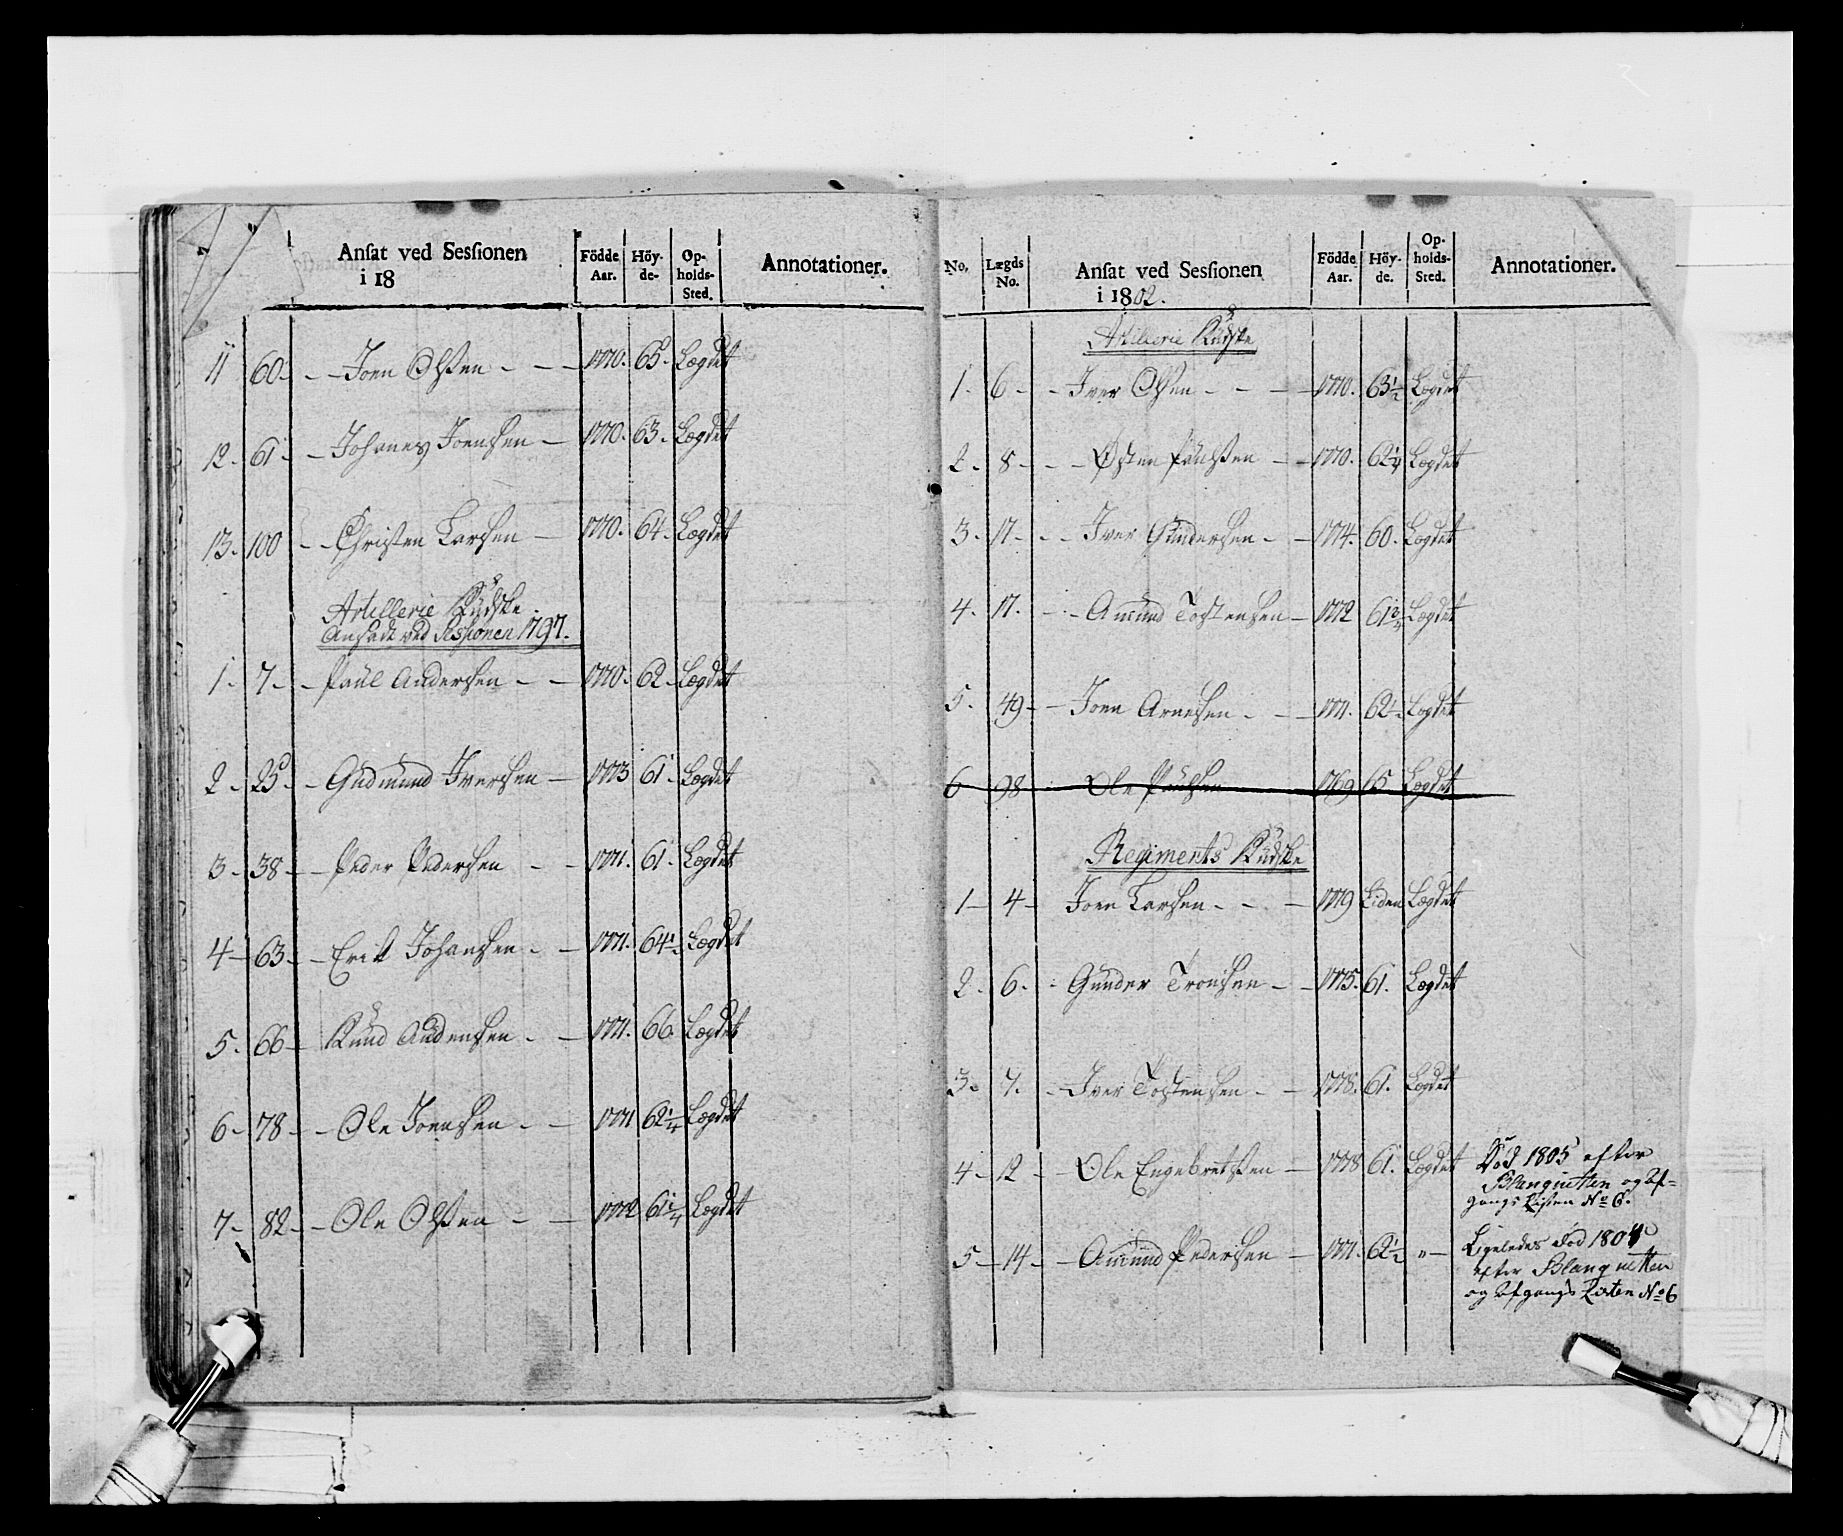 Ansat ved Sessionen
i 18
Födde Aar. Höyde. Opholds-Sted. Annotationer.
11 60 Joen Olsen 1770. 65. Lægdet
12. 61 Johanes Joensen 1770. 63. Lægdet
13. 100 Christen Larsen 1770. 64. Lægdet
Artillerie Kudske
Ansadt ved Sessionen 1797.
1. 7. Paul Andersen 1770. 62. Lægdet
2. 25. Gudmund Iversen 1773 61. Lægdet
3. 38. Peder Pedersen 1771. 61. Lægdet
4 63. Erik Johansen 1771. 64½ Lægdet
5. 66 Knud Audensen 1771. 66 Lægdet
6. 78 Ole Joensen 1771 62¼ Lægdet
7. 82 Ole Olsen 1772 61¼ Lægdet
No. Lægds No. Ansat ved Sessionen
i 1802.
Födde Aar. Höyde. Opholds-Sted. Annotationer.
Artillerie Kudske
1. 6 Iver Olsen 1770. 63½ Lægdet
2. 8 Østen Paulsen 1770. 62¼ Lægdet
3. 17 Iver Gundersen 1774. 60. Lægdet
4. 17. Amund Tostensen 1772 61¾ Lægdet
5. 49 Joen Arnesen 1771. 62½ Lægdet
6 98 Ole Paulsen 1769 65 Lægdet
Regiments Kudske
1 4 Joen Larsen 1779 Liden Lægdet
2. 6. Gunder Tronsen 1775. 61. Lægdet
3. 7. Iver Tostensen 1778. 61. Lægdet
4 12 Ole Engebretsen 1778 61. Lægdet Død 1805 efter
Blanquetten og Af=
gangs Listen No 6.
5 14 Amund Pedersen 1771. 62½ " Ligeledes død 1804
efter Blanquetten
og Afgangs Listen No 6